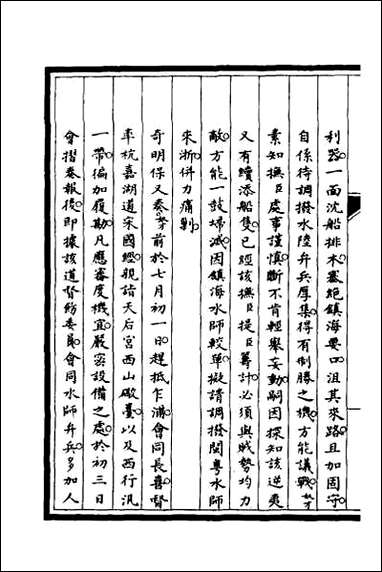 利器一面沈船排木塞絕鎮海要口沮其來路且加固守
自係待調撥水陸弁兵厚集得有制勝之機方能議戰
素知撫臣處事謹慎斷不肯輕舉妄動嗣因探知該逆夷
又有續添船隻已經該撫臣提臣籌計必須與賊勢均力
敵方能一鼓埽滅因鎮海水師較單擬請調撥閩粵水師
來浙併力痛剿
奇明保又奏前於七月初一日趕抵乍浦會同長喜督
率杭嘉湖道宋國經親詣天后宮西山礮臺以及西行汛
一帶徧加履勘凡應審度機宜嚴密設備之處於初三日
會摺奏報後即據該道督飭委員會同水師弁兵多加人